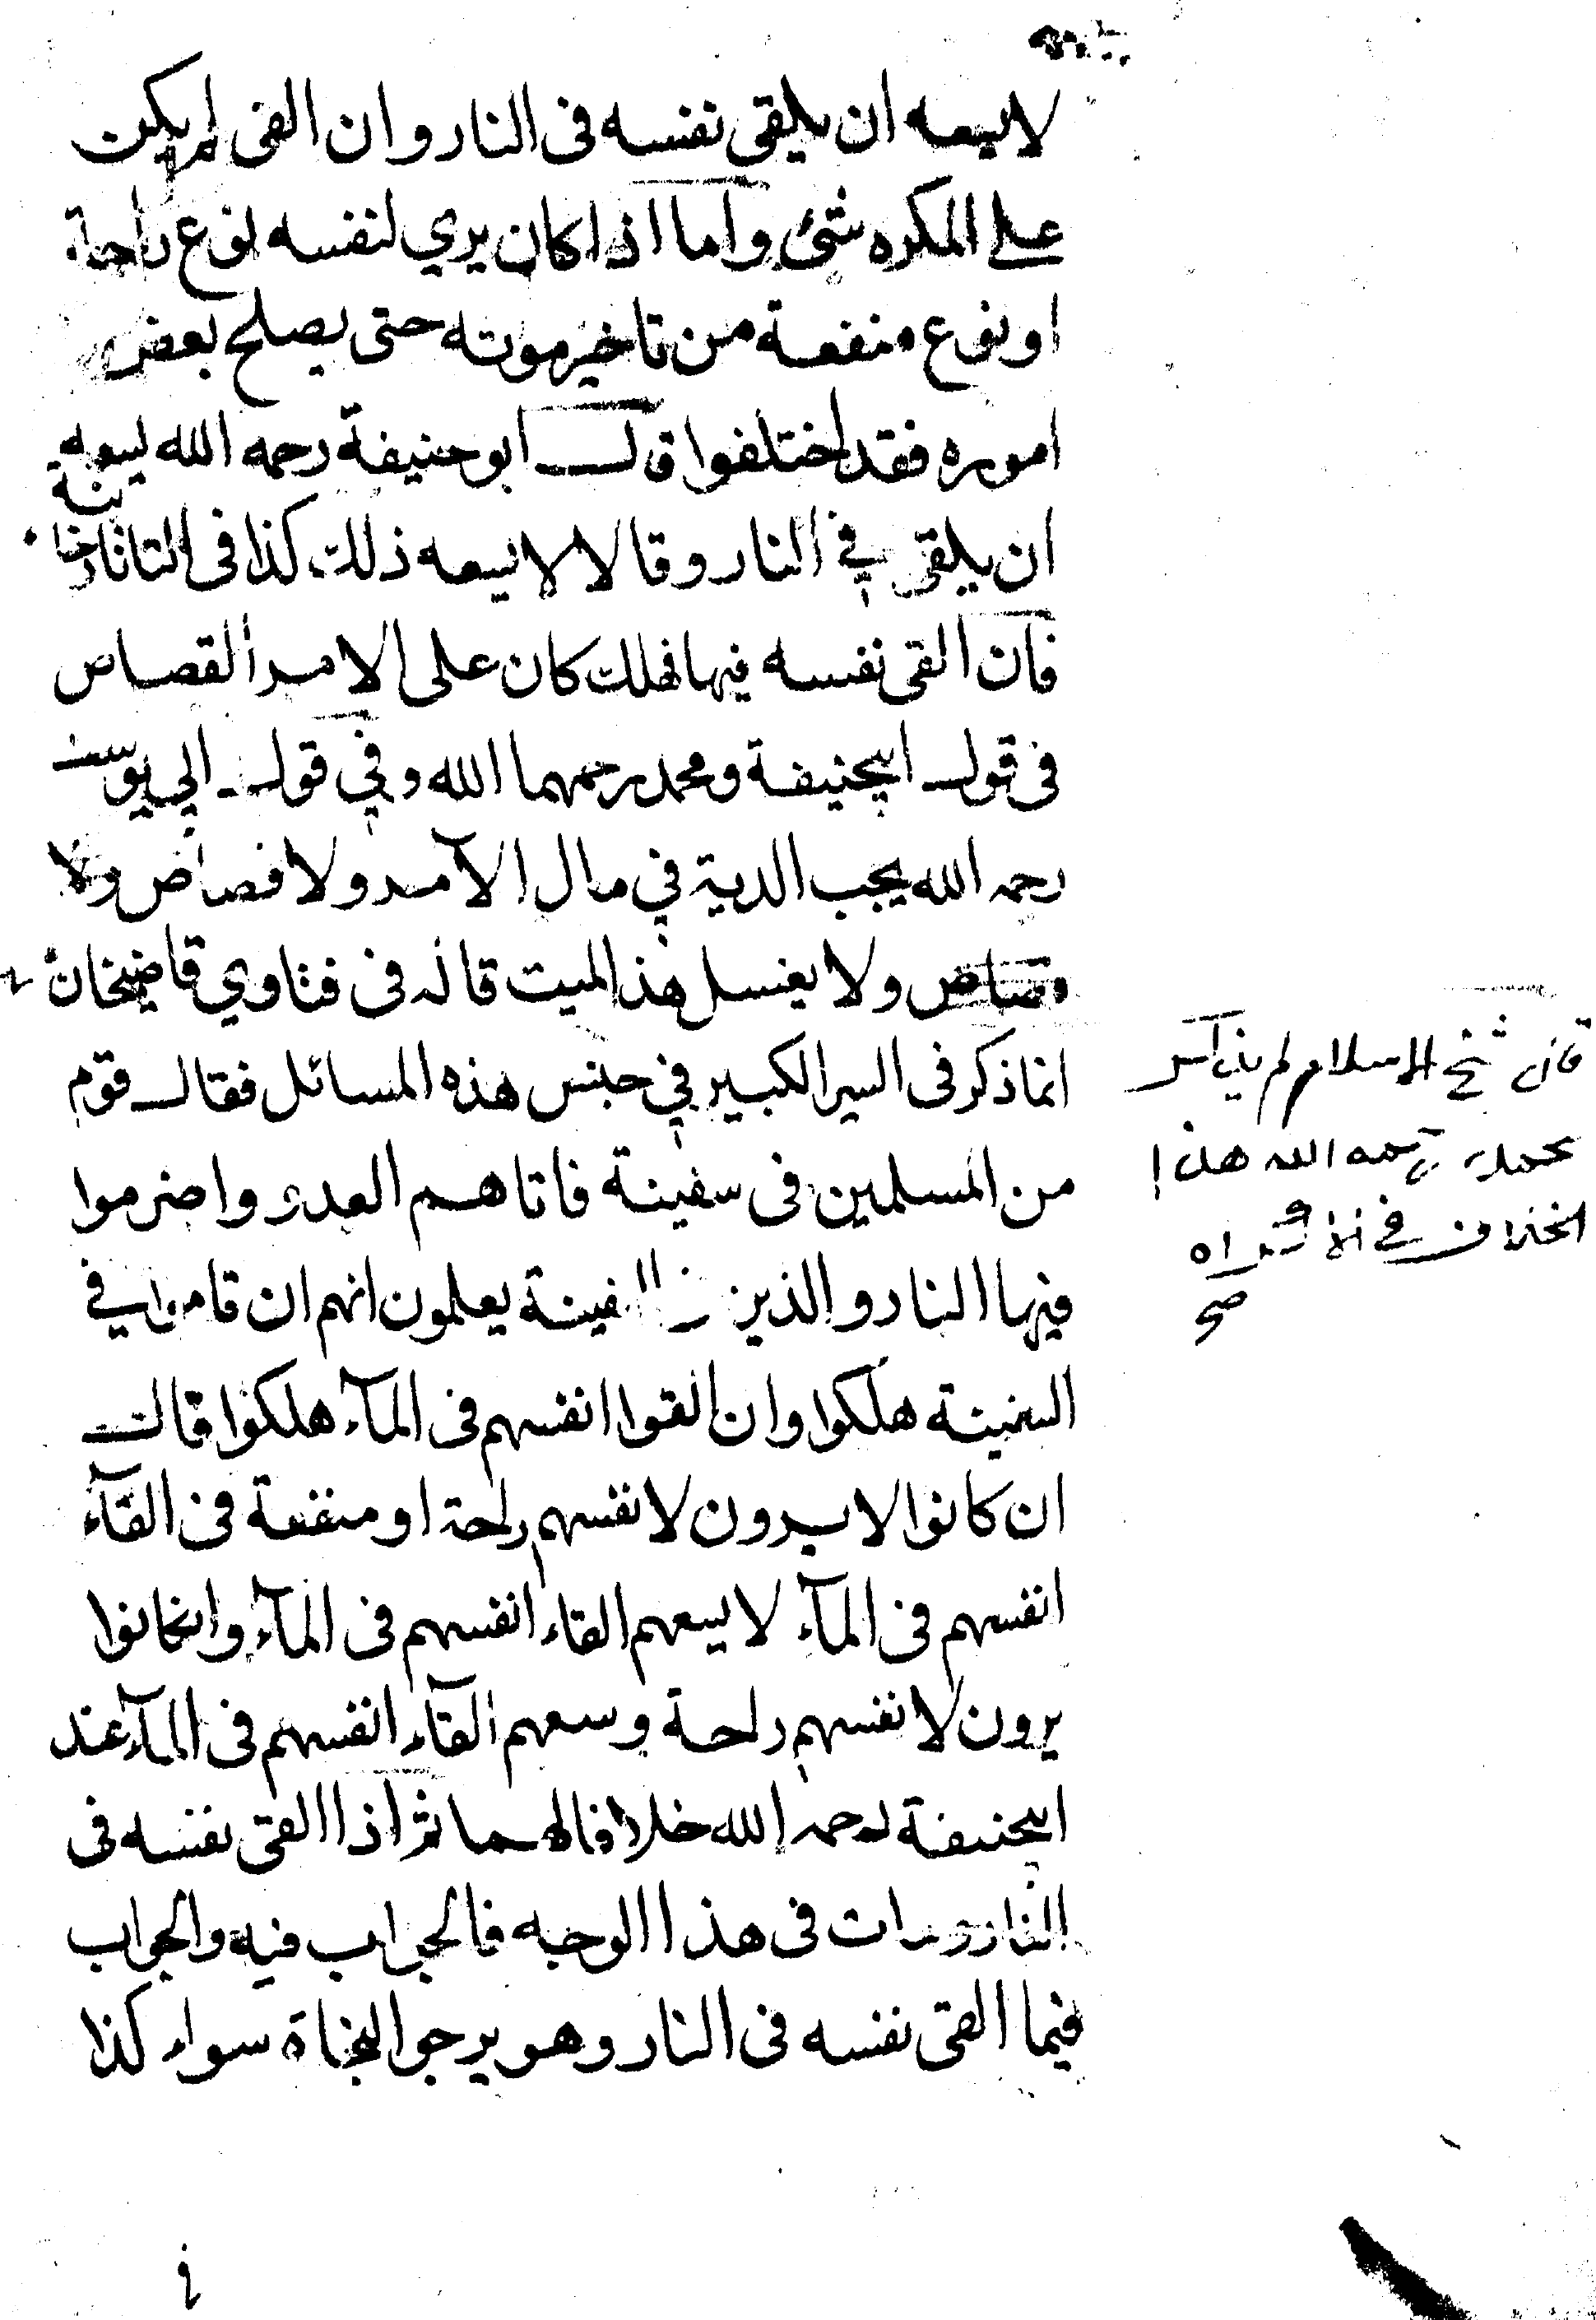 لا يسعه ان يلقى نفسه فى النار وان القى لم يكن
على المكره شئ واما اذا كان يري لنفسه نوع راحة
او نوع منفعة من تاخير موته حتى يصلح بعض
اموره فقد اختلفوا قال ابو حنيفة رحمه الله يسعه
ان يلقى في النار وقالا لا يسعه ذلك كذا فى التاتارخانية
فان القى نفسه فيها فهلك كان على الامر القصاص
فى قول ابيحنيفة ومحمد رحمهما الله وفي قول ابي يوسف
رحمه الله يجب الدية في مال الآمر ولا قصاص ولا
قصاص ولا يغسل هذا الميت قاله فى فتاوي قاضيخان
انما ذكر فى السير الكبير في جنس هذه المسائل فقال قوم
من المسلمين فى سفينة فاتاهم العدو واضرموا
فيها النار والذين السفينة يعلمون انهم ان قاموا في
السفينة هلكوا وان القوا انفسهم فى المآء هلكوا قال
ان كانوا لا يرون لانفسهم راحة او منفعة فى القآء
انفسهم فى المآء لا يسعهم القاء انفسهم فى المآء وانكانوا
يرون لانفسهم راحة وسعهم القآء انفسهم فى المآء عند
ابيحنيفة رحمه الله خلافا لهما ثم اذا القى نفسه فى
النار ومات فى هذا الوجه فالجواب فيه والجواب
فيما القى نفسه فى النار وهو يرجو النجاة سواء كذا
قال شيخ الاسلام لم يذكر
محمد رحمه الله هذا
الخلاف في الاكراه
صح
في